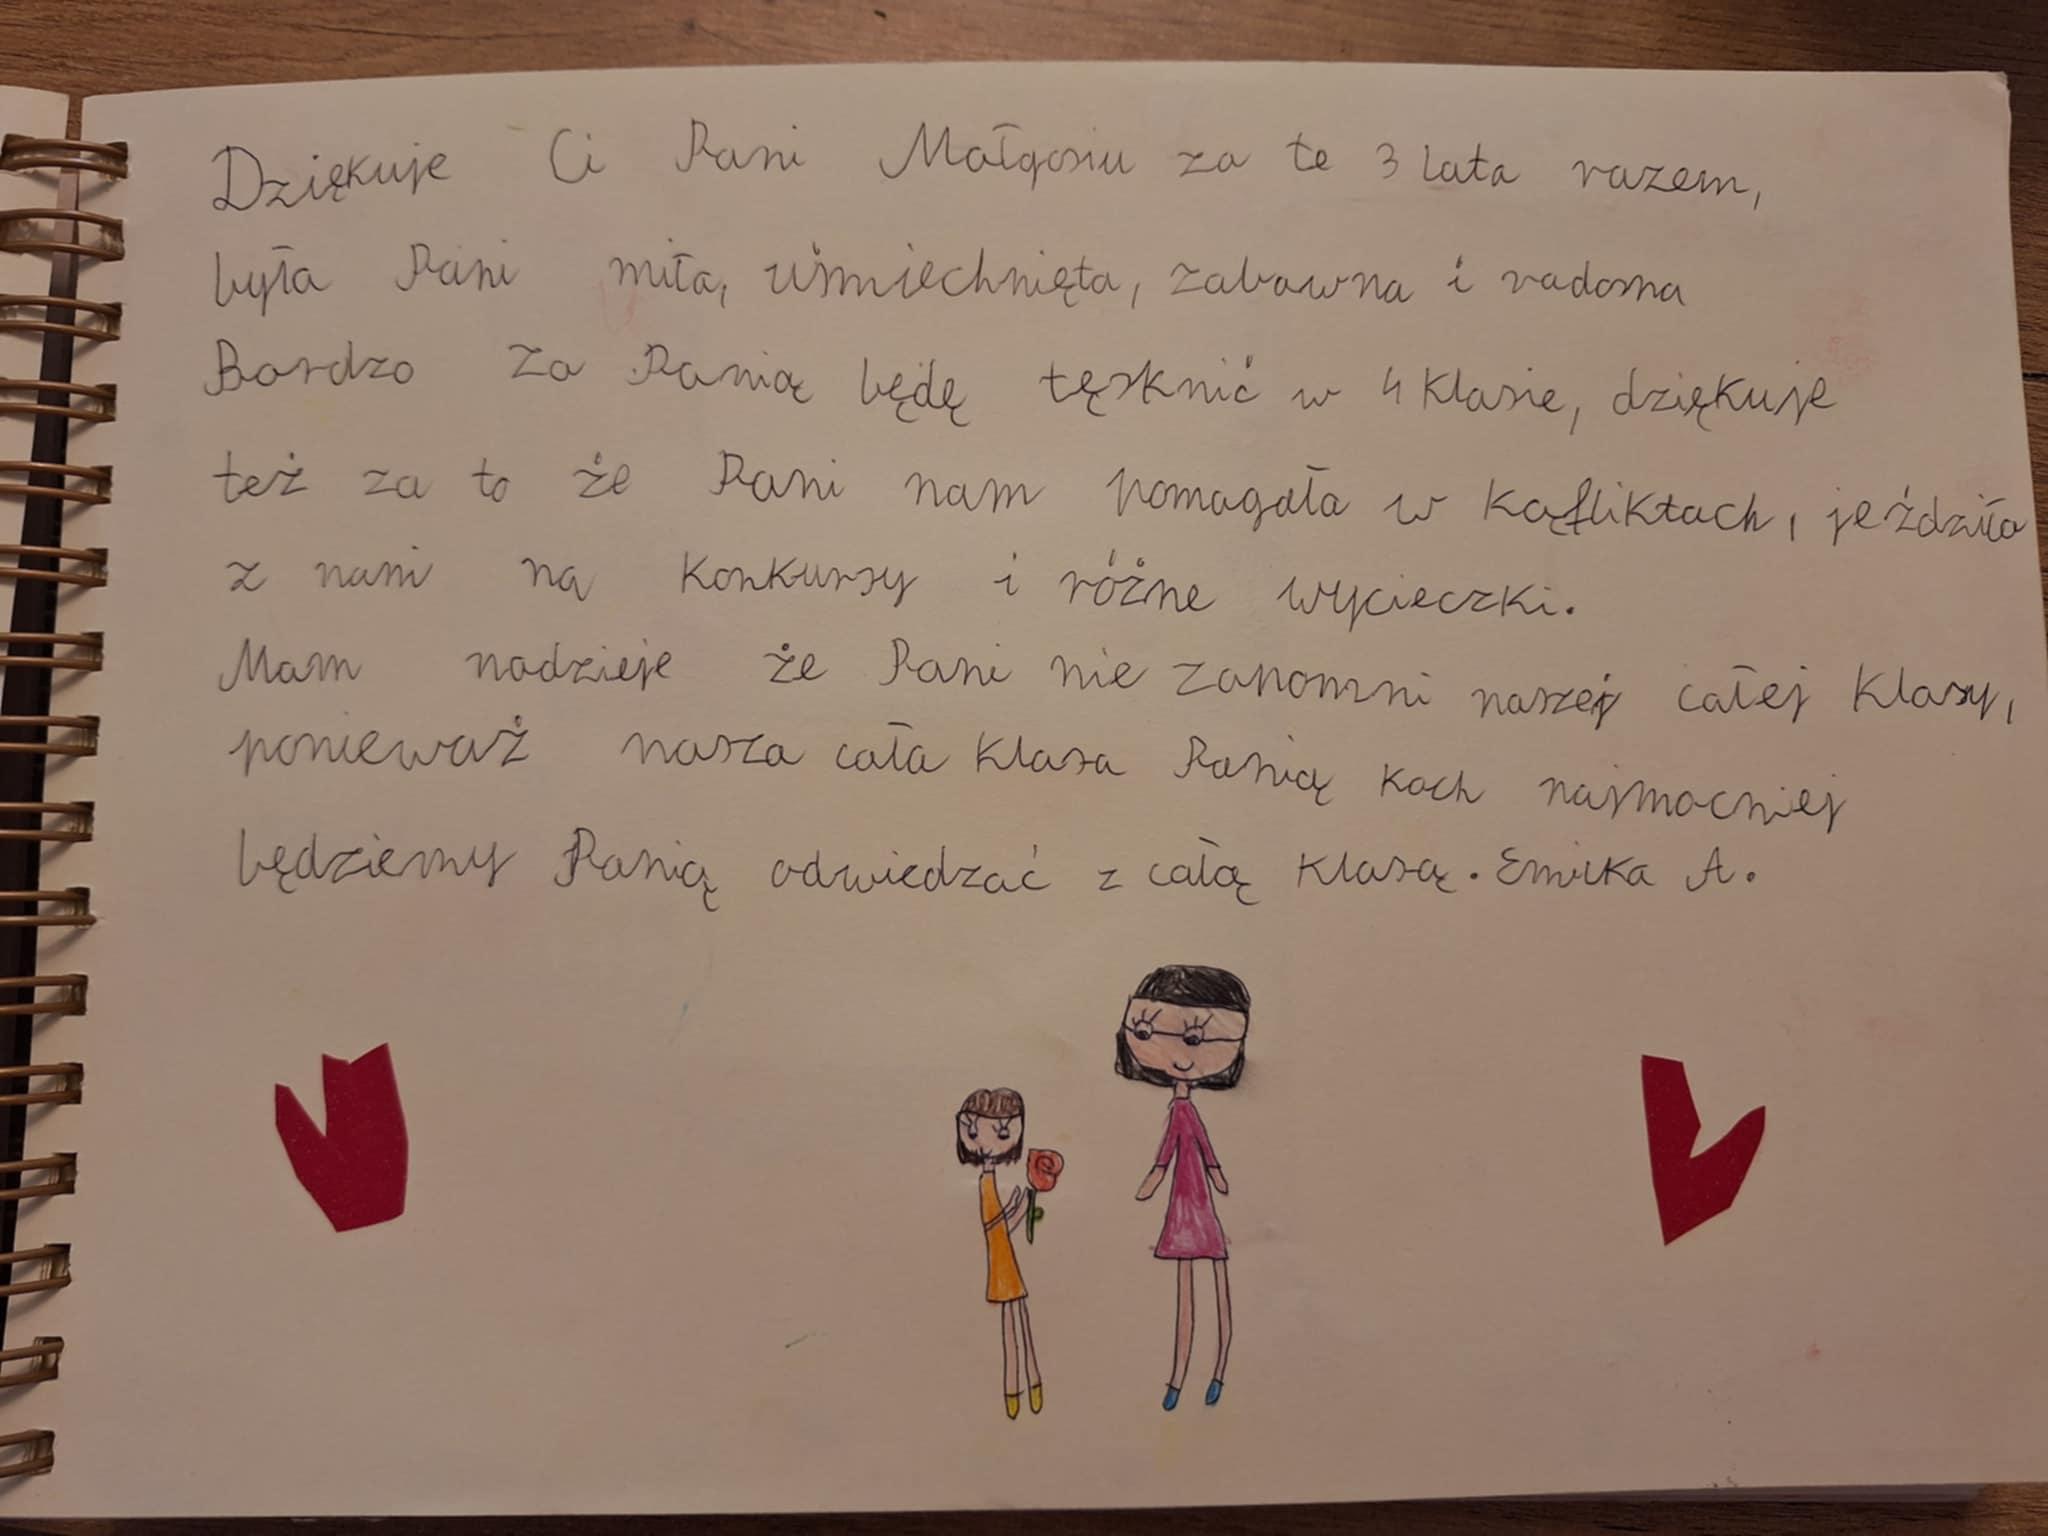 Dziękuje Ci Pani Małgosiu za te 3 lata razem,
była Pani miła, uśmiechnięta, zabawna i radosna
Bardzo za Panią będę tęsknić w 4 klasie, dziękuje
też za to że Pani nam pomagała w kąfliktach, jeździła
z nami na konkursy i różne wycieczki.
Mam nadzieje że Pani nie zapomni naszej całej klasy,
ponieważ nasza cała klasa Panią koch najmocniej
będziemy Panią odwiedzać z całą klasą. Emilka A.